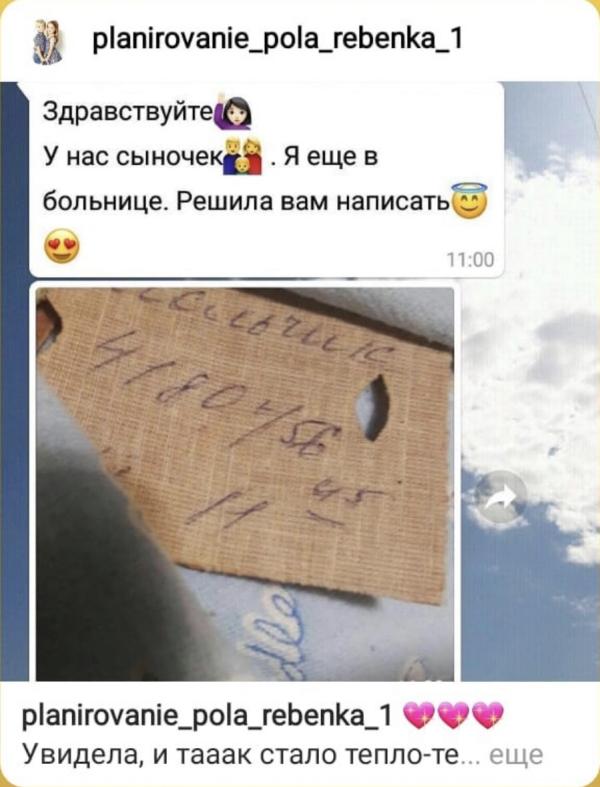 planirovanie_pola_rebenka_1
Здравствуйте🙋🏻‍♀️
У нас сыночек👨‍👩‍👦 . Я еще в
больнице. Решила вам написать😇
😍
11:00
мальчик
4180 г/56
11 45
planirovanie_pola_rebenka_1 💖💖💖
Увидела, и тааак стало тепло-те... еще